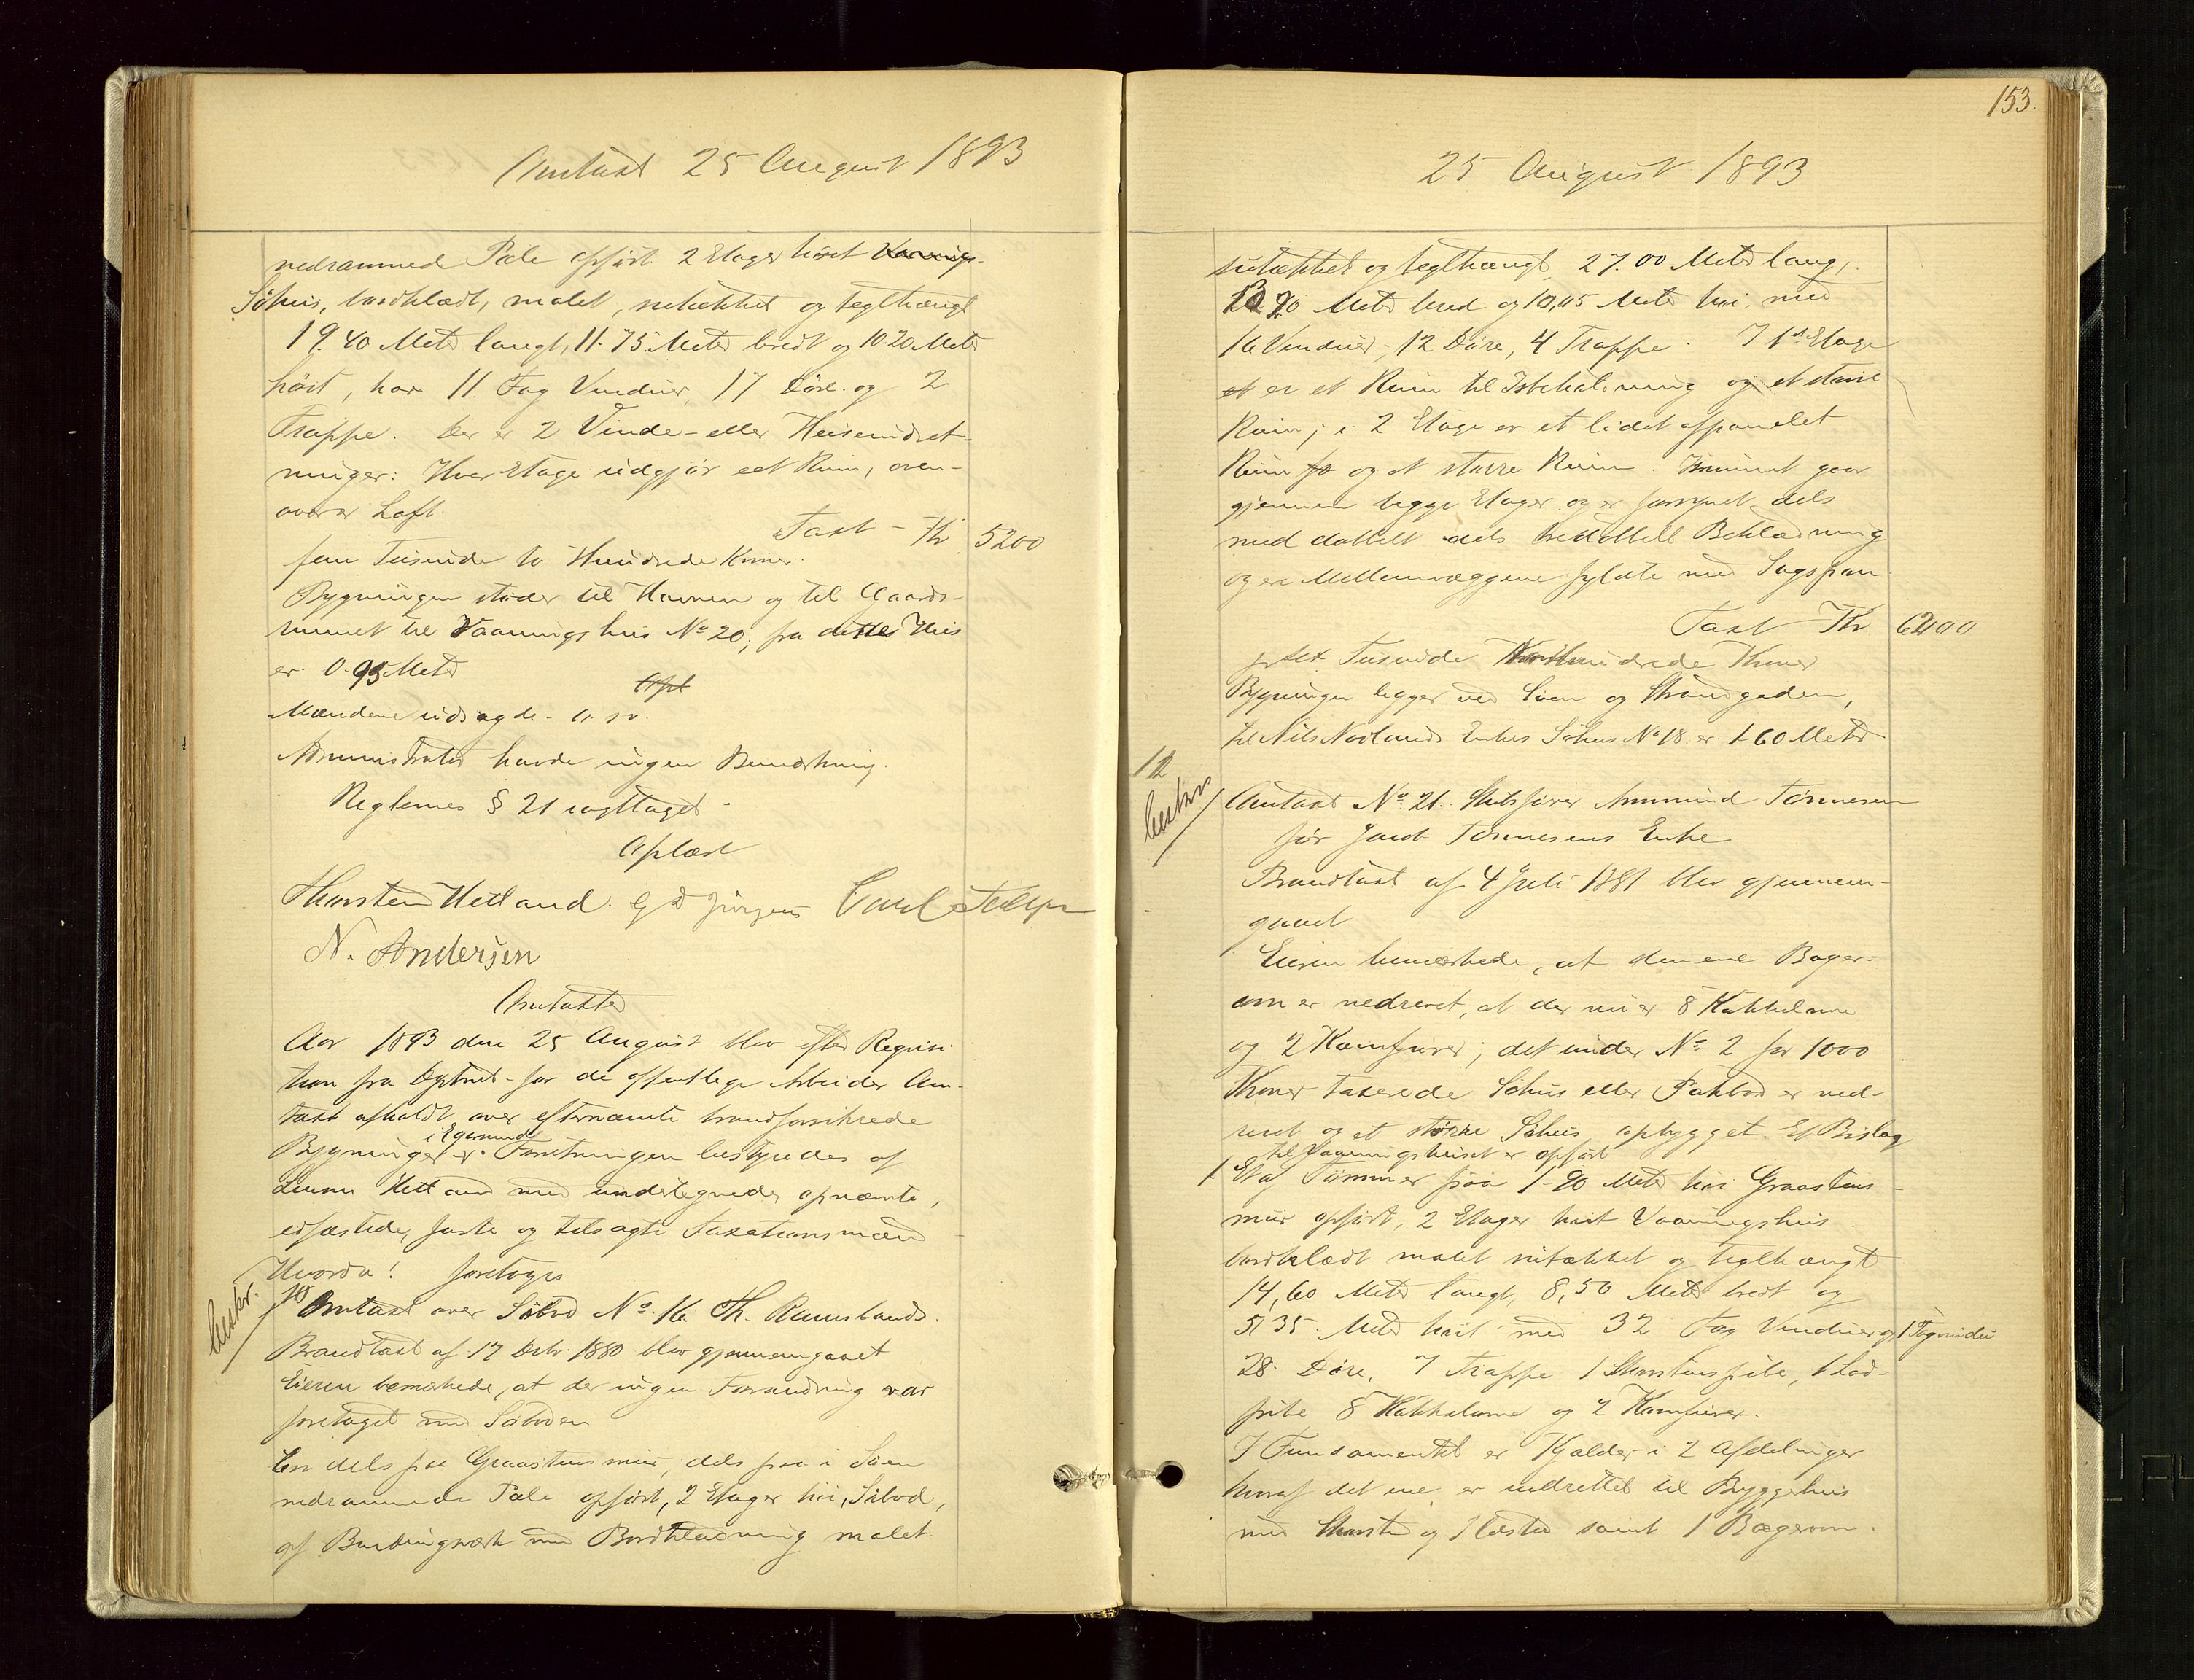 Omtaxt 25 August 1893
nedrammed Pæle opført 2 Etager høit Vaanings-
Søhus, bordklædt, malet, suttækket og teglhængt
19.40 Meter langt, 11.75 Meter bredt og 10.20 Meter
høit, har 11 Fag Vinduer, 17 Døre og 2
Trapper. Der er 2 Vinde- eller Heiseindret-
ninger: Hver Etage udgjør eet Rum, oven-
over er Loft.
Taxt - Kr 5200
fem Tusinde to Hundrede Kroner.
Bygningen støder til Havnen og til Gaards-
rummet til Vaaningshus No 20, fra dette Hus
er 0.95 Meter
Opl
Mændene udsagde. a. sv.
Administrator havde ingen Bemærkning.
Reglernes § 21 iagttaget
Oplæst
Thorsten Hetland. G D Jürgens Carl
N. Andersen
Omtaxter
Aar 1893 den 25 August blev efter Reqvisi-
tion fra for de offentlige Arbeider Om-
taxt afholdt over efternævnte brandforsikrede
i Egersund
Bygninger Forretningen bestyredes af
Hetland med undertegnede opnævnte,
edfæstede, faste og tilsagte Taxationsmænd
Hvorda! foretoges
beskr.
10 Omtaxt over Søbod No 16 Th. Ramslands.
Brandtaxt af 17 Debr. 1880 blev gjennemgaaet
Eieren bemærkede, at der ingen Forandring var
foretaget med Søboden
En dels paa Graastensmur, dels paa i Søen
nedrammede Pæle opført, 2 Etager høi, Søbod,
af Bindingværk med Bordklædning malet
153.
25 August 1893
suttækket og teglhængt 27.00 Meter lang,
Meter bred og 10,05 Meter høi, med
16 Vinduer, 12 Døre, 4 Trapper. I 1ste Etage
et er et Rum til Isbehandling og et større
Rum; i 2 Etage er et lidet afpanelet
Rum fo og et større Rum. Isrummet gaar
gjennem begge Etager og er forsynet dels
med dobbelt dels tredobbelt Beklædning
og ere Mellemvæggene fyldte med Sagspan
Taxt Kr
sex Tusinde Hundrede Kroner
Bygningen ligger ved Søen og Strandgaden,
til Nils Nodlands Enkes Søhus No 18 er 1-60 Meter
12
beskr
Omtaxt No 21. Skibsfører Ammund Tønnesen
for Jacob Tønnesens Enke
Brandtaxt af 4 Juli 1881 blev gjennem-
gaaet
Eieren bemærkede, at den ene Bager-
ovn er nedrevet, at der nu er 8 Kakkelovne
og 2 Komfurer; det under No 2 for 1000
Kroner taxerede Søhus eller Pakbod er ned-
revet og et større Søhus opbygget. Et Bislag
til Vaaningshuset er opført
1. Et af Tømmer paa 1-90 Meter høi Graastens-
mur opført, 2 Etager høit Vaaningshus
bordklædt malet suttækket og teglhængt
14,60 Meter langt, 8,50 Meter bredt og
5,35 Meter høit med 32 Fag Vinduer og 1 Tagvindu
28 Døre, 7 Trapper 1 Skorstenspibe, 1 Lod-
pibe 8 Kakkelovne og 2 Komfurer.
I Fundamentet er Kjælder i 2 Afdelinger
hvoraf det ene er indrettet til Bryggehus
med Skorsten og Ildsted samt 1 Bagerovn.